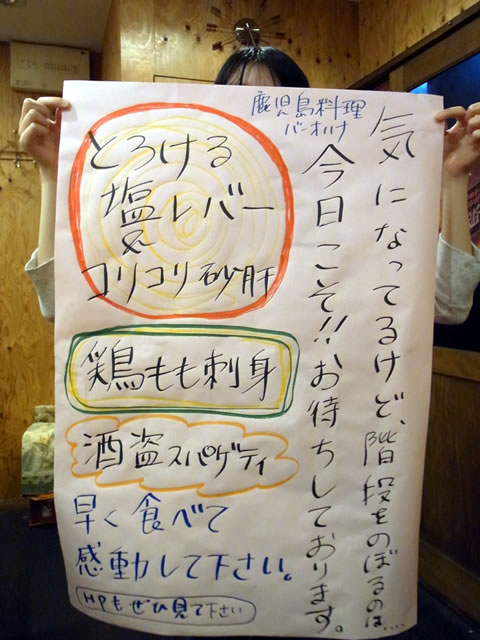 気になってるけど、階段をのぼるのは....
鹿児島料理
バーオハナ
今日こそ!!お待ちしております。
とろける
塩レバー
コリコリ砂肝
鶏もも刺身
酒盗スパゲティ
早く食べて
感動して下さい。
HPもぜひ見て下さい